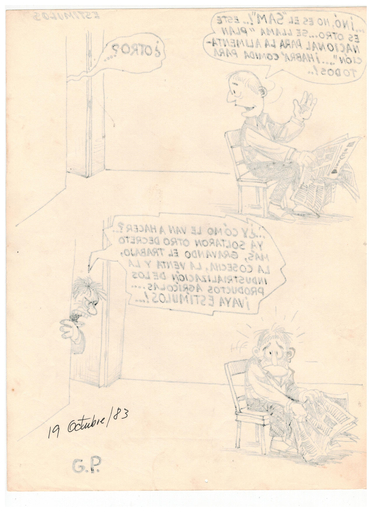 ESTIMULOS
...¡NO, NO ES EL "SAM"!.. ESTE
ES OTRO... SE LLAMA "PLAN
NACIONAL PARA LA ALIMENTA-
CIÓN"....¡HABRÁ COMIDA PARA
TODOS!..
¿OTRO?..
...¿Y CÓMO LE VAN A HACER?..
YA SOLTARON OTRO DECRETO
MÁS, GRAVANDO EL TRABAJO,
LA COSECHA, LA VENTA Y LA
INDUSTRIALIZACIÓN DE LOS
PRODUCTOS AGRÍCOLAS....
¡VAYA ESTIMULOS!...
19 Octubre/83
G.P.